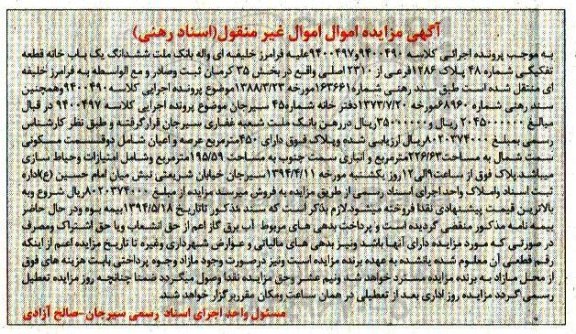 آگهی مزایده اموال غیر منقول(اسناد رهنی)
به موجب پرونده اجرائی کلاسه ۹۴۰۰۴۹۰و۹۴۰۰۴۹۷علیه فرامرز خلیفه ای واله بانک ملت ششدانگ یک باب خانه قطعه
تفکیکی شماره ۴۸ پلاک ۱۲۸۶فرعی از ۲۳۱۰اصلی واقع در بخش ۳۵ کرمان ثبت وصادر و مع الواسطه بنام فرامرز خلیفه
ای منتقل شده است طبق سند رهنی شماره ۱۶۳۶۶۱مورخه ۱۳۸۸/۳/۲۳ موضوع پرونده اجرایی کلاسه ۹۴۰۰۴۹۰وهمچنین
سند رهنی شماره ۶۸۹۶۰مورخه ۱۳۷۳/۷/۲۰ دفتر خانه شماره۴۵ سیرجان موضوع پرونده اجرایی کلاسه ۹۴۰۰۴۹۷ در قبال
مبالغ ریال و ریال دررهن بانک ملت شعبه غفاری سیرجان قرارگرفته و طبق نظر کارشناس
رسمی بمبلغ ریال ارزیابی شده وپلاک فوق دارای ۴۵۰مترمربع عرصه و اعیان شامل دوقسمت مسکونی
سمت شمال به مساحت۲۲۶/۶۳مترمربع و انباری سمت جنوب به مساحت ۱۹۵/۵۹مترمربع وشامل امتیازات وحیاط سازی
میباشد پلاک فوق از ساعت۹الی۱۲ روز یکشنبه مورخه ۱۳۹۴/۴/۱۱سیرجان خیابان شریعتی نبش میدان امام حسین (ع)اداره
ثبت اسناد واملاک واحد اجرای اسناد رسمی از طریق مزایده به فروش میرسد مزایده از مبلغ ریال شروع وبه
بالاترین قیمت پیشنهادی نقدا فروخته میشود.لازم بذکر است که سند مذکور تاتاریخ ۱۳۹۴/۵/۱۸بیمه بوده ودر حال حاضر
بیمه نامه مذکور منقضی گردیده است و پرداخت بدهی های مربوط آب برق گاز اعم از حق انشعاب ویا حق اشتراک ومصرف
در صورتی که مورد مزایده دارای آنها باشد ونیز بدهی های مالیاتی و عوارض شهرداری وغیره تا تاریخ مزایده اعم از اینکه
رقم قطعی آن معلوم شده یانشده به عهده برنده مزایده است ونیز درصورت وجود مازاد وجوه پرداختی بابت هزینه های فوق
از محل مازاد به برنده مزایده مسترد خواهد شد ونیم عشر وحق مزایده نقدا وصول میگردد ضمنا چنانچه روز مزایده تعطیل
رسمی گردد مزایده روز اداری بعد از تعطیلی در همان ساعت ومکان مقرربرگزار خواهد شد
مسئول واحد اجرای اسناد رسمی سیرجان-صالح آزادی